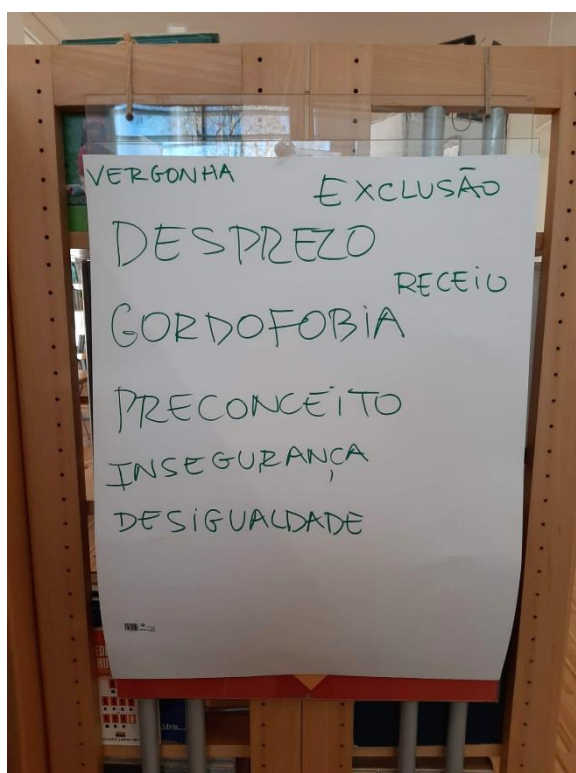 VERGONHA
EXCLUSÃO
DESPREZO
RECEIO
GORDOFOBIA
PRECONCEITO
INSEGURANÇA
DESIGUALDADE